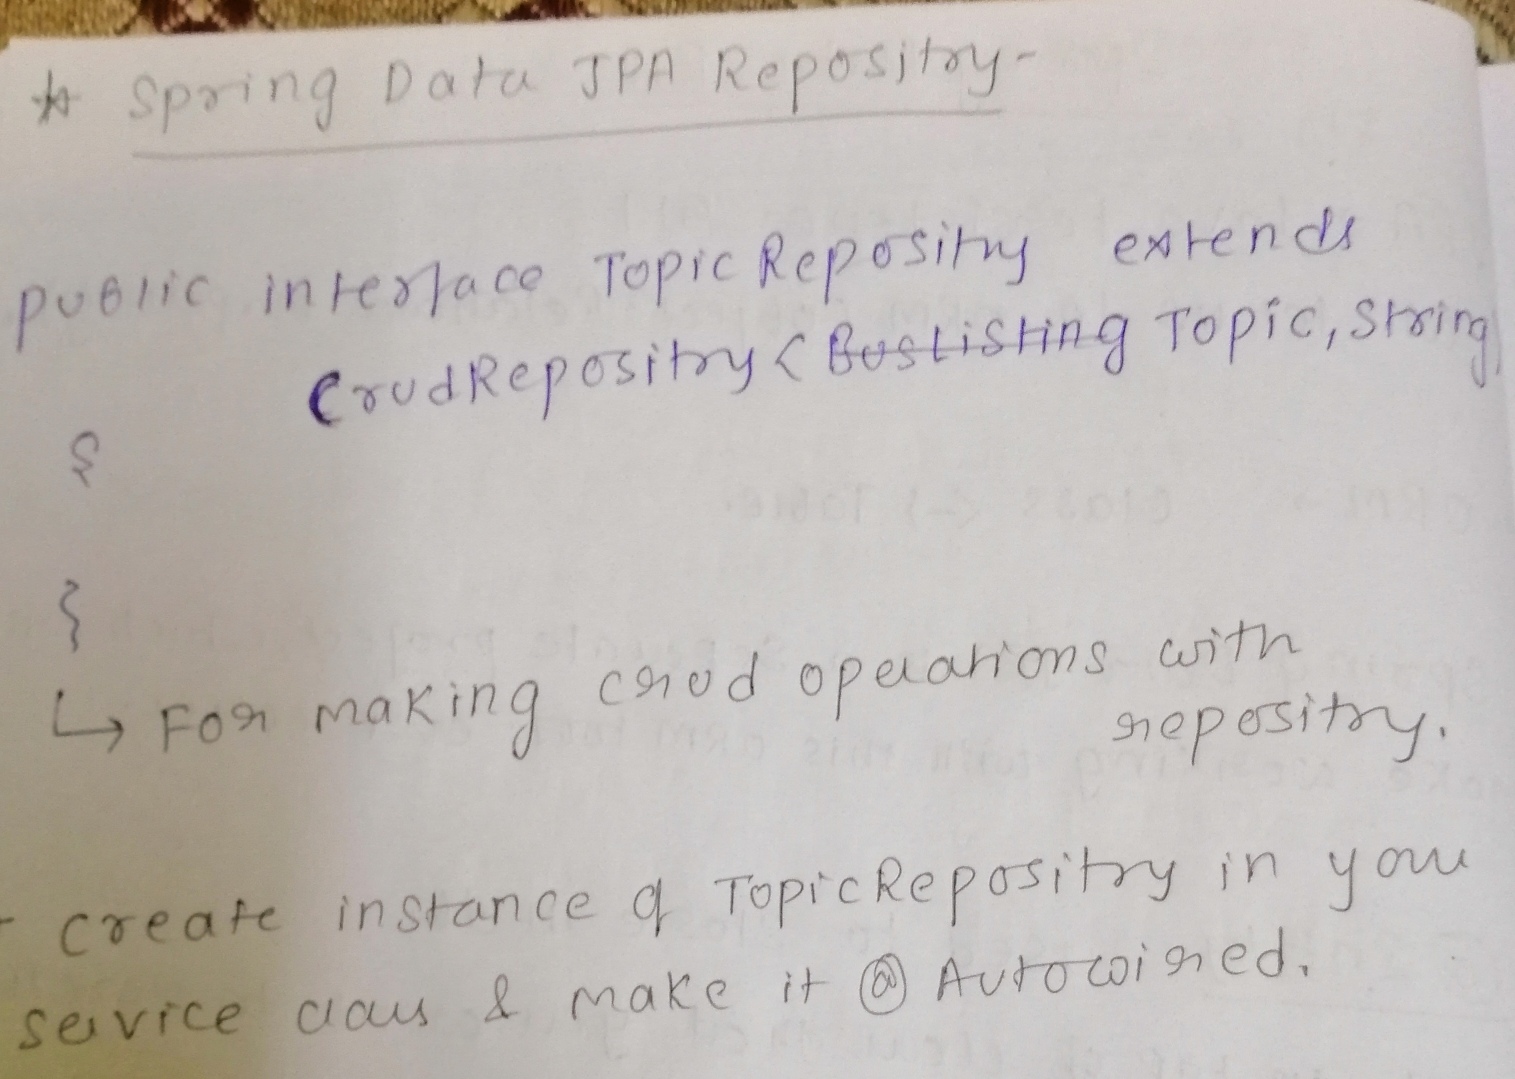 * Spring Data JPA Repositry-
public interface TopicRepositry extends
CrudRepositry < BusListing Topic, String
{
}
↳ For making crud operations with
repositry.
- create instance of TopicRepositry in your
service class & make it @ Autowired.